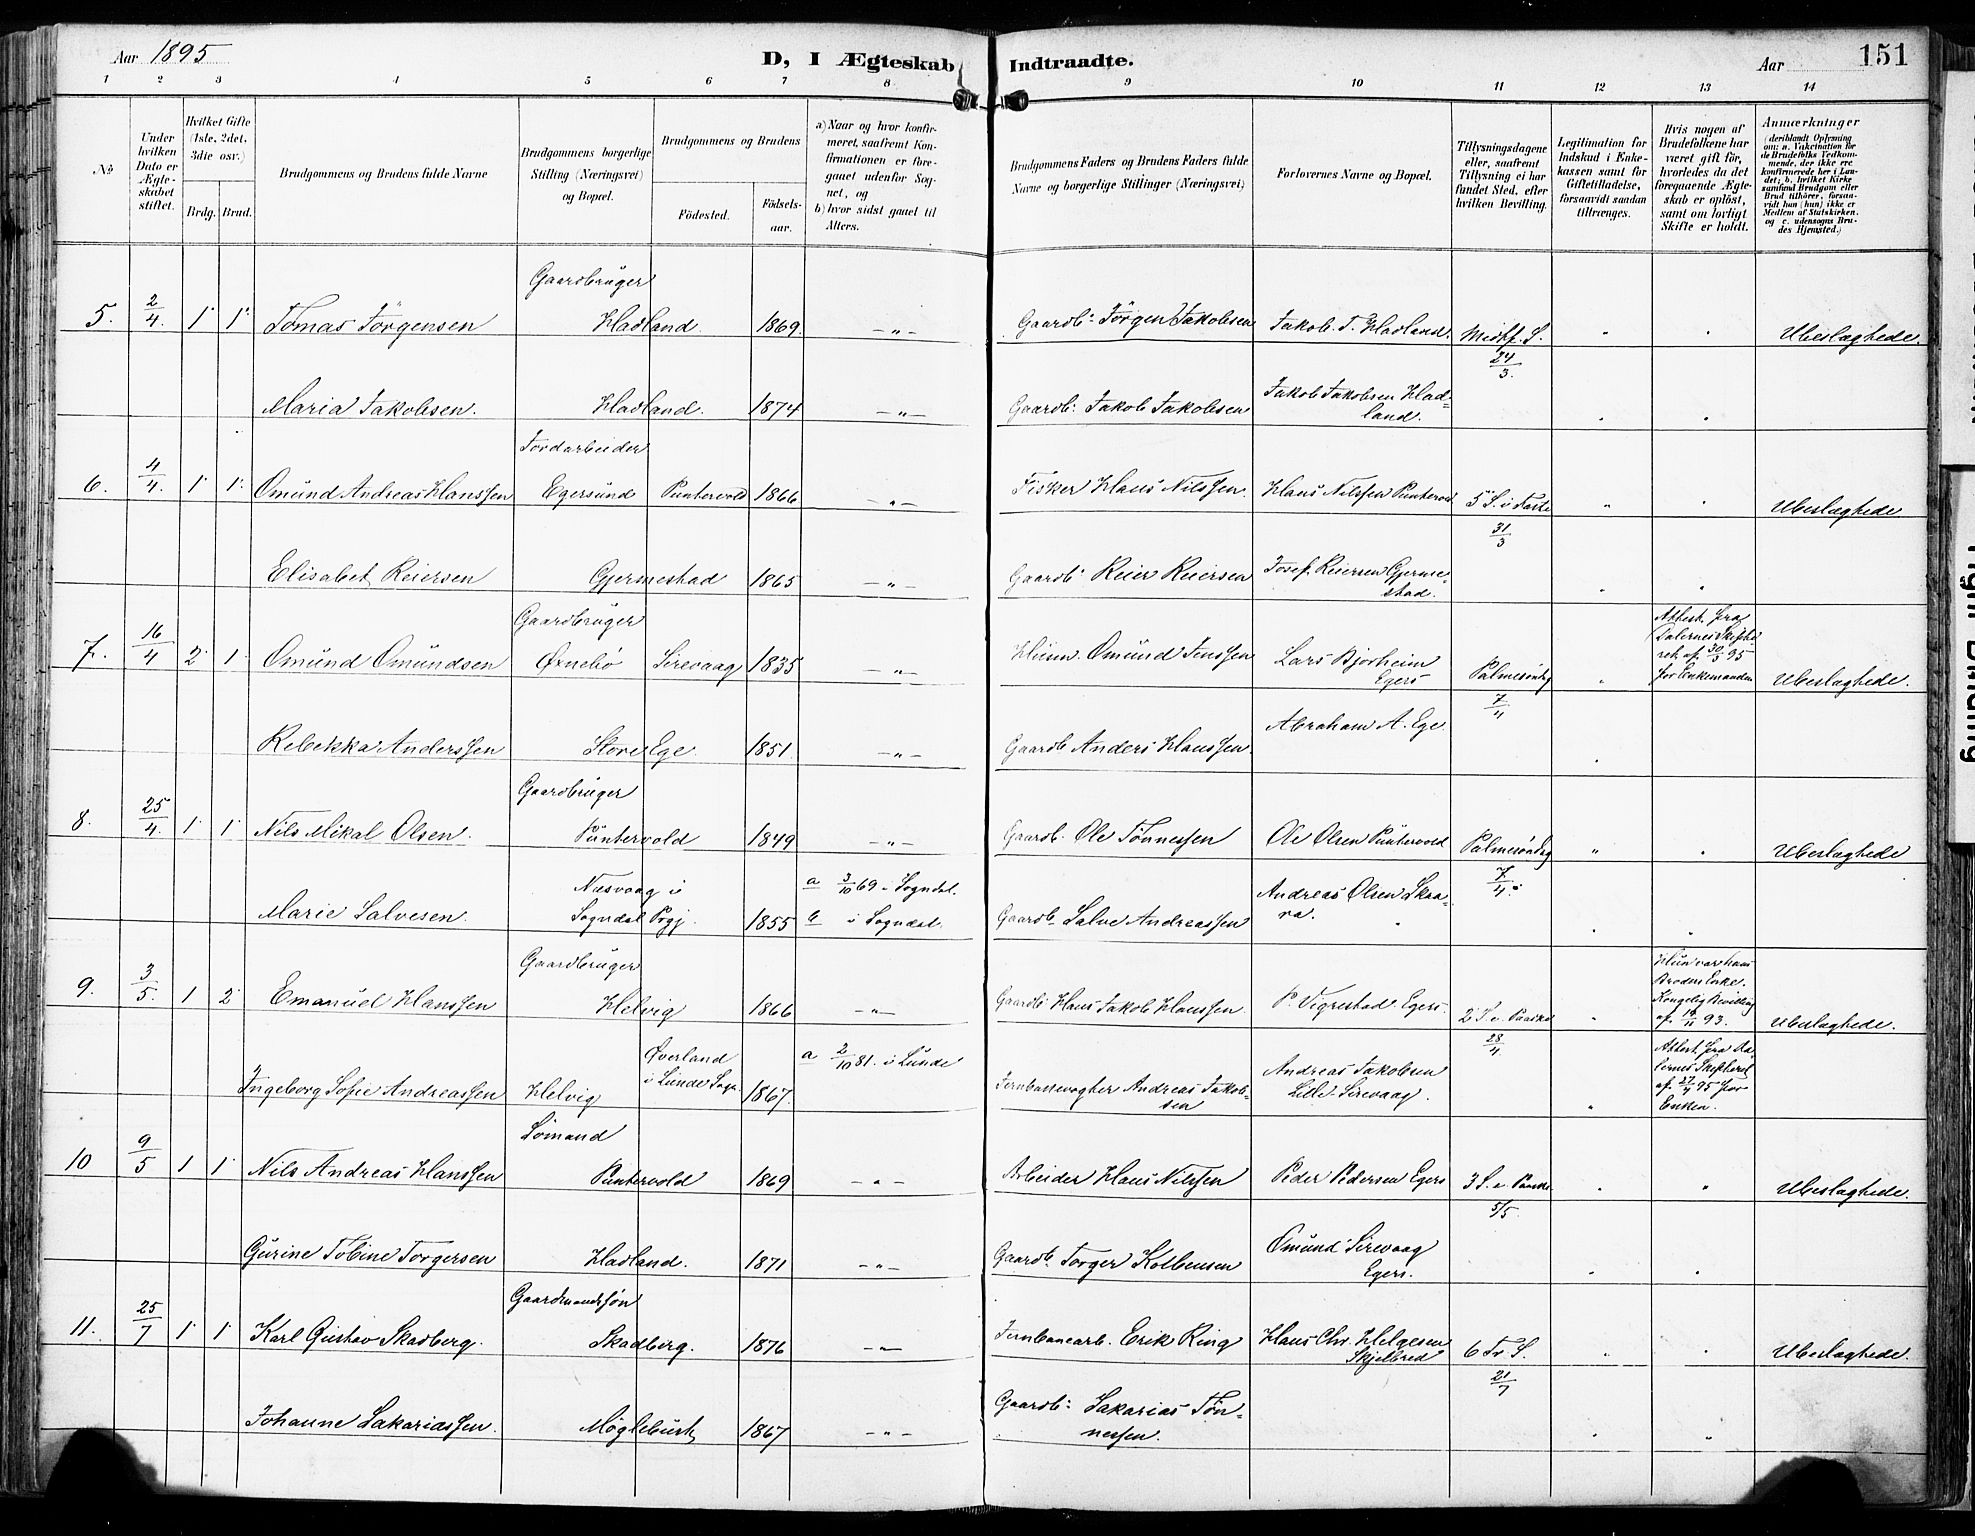 Aar 1895
D, I Ægteskab Indtraadte.
Aar
151
1 2 3 4 5 6 7 8 9 10 11 12 13 14
No
Under hvilken Dato er Ægteskabet stiftet.
Hvilket Gifte (1ste, 2det, 3die osv.)
Brdg. Brud.
Brudgommens og Brudens fulde Navne
Brudgommens borgerlige Stilling (Næringsvei) og Bopæl.
Brudgommens og Brudens
Fødested.
Fødselsaar.
a) Naar og hvor konfirmeret, saafremt Konfirmationen er foregaaet udenfor Sognet, og
b) hvor sidst gaaet til Alters.
Brudgommens Faders og Brudens Faders fulde Navne og borgerlige Stillinger (Næringsvei)
Forlovernes Navne og Bopæl.
Tillysningsdagene eller, saafremt Tillysning ei har fundet Sted, efter hvilken Bevilling.
Legitimation for Indskud i Enkekassen samt for Giftetilladelse, forsaavidt saadan tiltrænges.
Hvis nogen af Brudefolkene har været gift før, hvorledes da det foregaaende Ægteskab er opløst, samt om lovligt Skifte er holdt.
Anmærkninger
(deriblandt Oplysning om: a. Vakcination for de Brudefolks Vedkommende, der ikke ere konfirmerede her i Landet; b. hvilket Kirkesamfund Brudgom eller Brud tilhører, forsaavidt hun (han) ikke er Medlem af Statskirken, og c. udensogns Brudes Hjemsted.)
Gaardbruger
5. 2/4. 1 1 Tomas Törgensen Hadland. 1869. —"— Gaardb: Törgen Jakobsen Jakob. T. Hadland. Midf. S. " " Ubeslægtede.
24/3.
Maria Jakobsen. Hadland. 1874 —"— Gaardb: Jakob Jakobsen Jakob Jakobsen Hadland. " "
Jordarbeider
6. 4/4. 1 1 Omund Andreas Hanssen Egersund Puntervold 1866 —"— Fisker Hans Nilssen Hans Nilssen Puntervold 5 S. i Faste " " Ubeslægtede
31/3
Elisabet Reiersen Gjermestad 1865 —"— Gaardb: Reier Reiersen Josef Reiersen Gjermestad. " "
Gaardbruger
7. 16/4 2 1 Omund Omundsen Ørnebö Sirevaag 1835 —"— Husm. Omund Jenssen Lars Bjorheim Egers Palmesöndag " Attest fra Dalernes Skifteret af 30/3 95 for Enkemanden Ubeslægtede.
7/4
Rebekka Anderssen Store Ege. 1851. —"— Gaardb Anders Hanssen. Abraham A. Ege. "
Gaardbruger
8. 25/4. 1 1 Nils Mikal Olsen. Puntervold 1849 —"— Gaardb. Ole Tönnessen Ole Olsen Puntervold Palmesöndag " " Ubeslægtede
7/4.
Marie Salvesen. Næsvaag i Sogndal Prgj. 1855 a 3/10 69 Sogndal. b i Sogndal. Gaardb. Salve Andreassen Andreas Olsen Skaara. " "
Gaardbruger
9. 3/5. 1 2 Emanuel Hanssen Helvig 1866 —"— Gaardb: Hans Jakob Hanssen P. Vigrestad Egers. 2 S. e. Paaske " Hun var hans Broders Enke. Kongelig Bevilling af 18/11 93. Ubeslægtede.
28/4
Ingeborg Sofie Andreassen Helvig Överland i Lunde Sogn. 1867. a 2/10 81. i Lunde Jernbanevogter Andreas Jakobsen Andreas Jakobsen Lille-Sirevaag. " Attest fra Dalernes Skifteret af 27/4 95 for Enken.
Sömand
10 9/5 1 1 Nils Andreas Hanssen Puntervold 1869 —"— Arbeider Hans Nilssen Peder Pedersen Egers 3 S. e. Paaske " " Ubeslægtede.
5/5.
Gurine Tobine Torgersen Hadland. 1871 —"— Gaardb. Torger Kolbensen Omund Sirevaag Egers. " "
Gaardmandssön
11. 25/7 1 1 Karl Gustav Skadberg. Skadberg. 1876 —"— Jernbanearb. Erik Ring Hans Chr. Helgesen Skjelbred 6 Tr. S. " " Ubeslægtede.
21/7
Johanne Sakariassen. Möglebust 1867 —"— Gaardb: Sakarias Tönnessen. " "